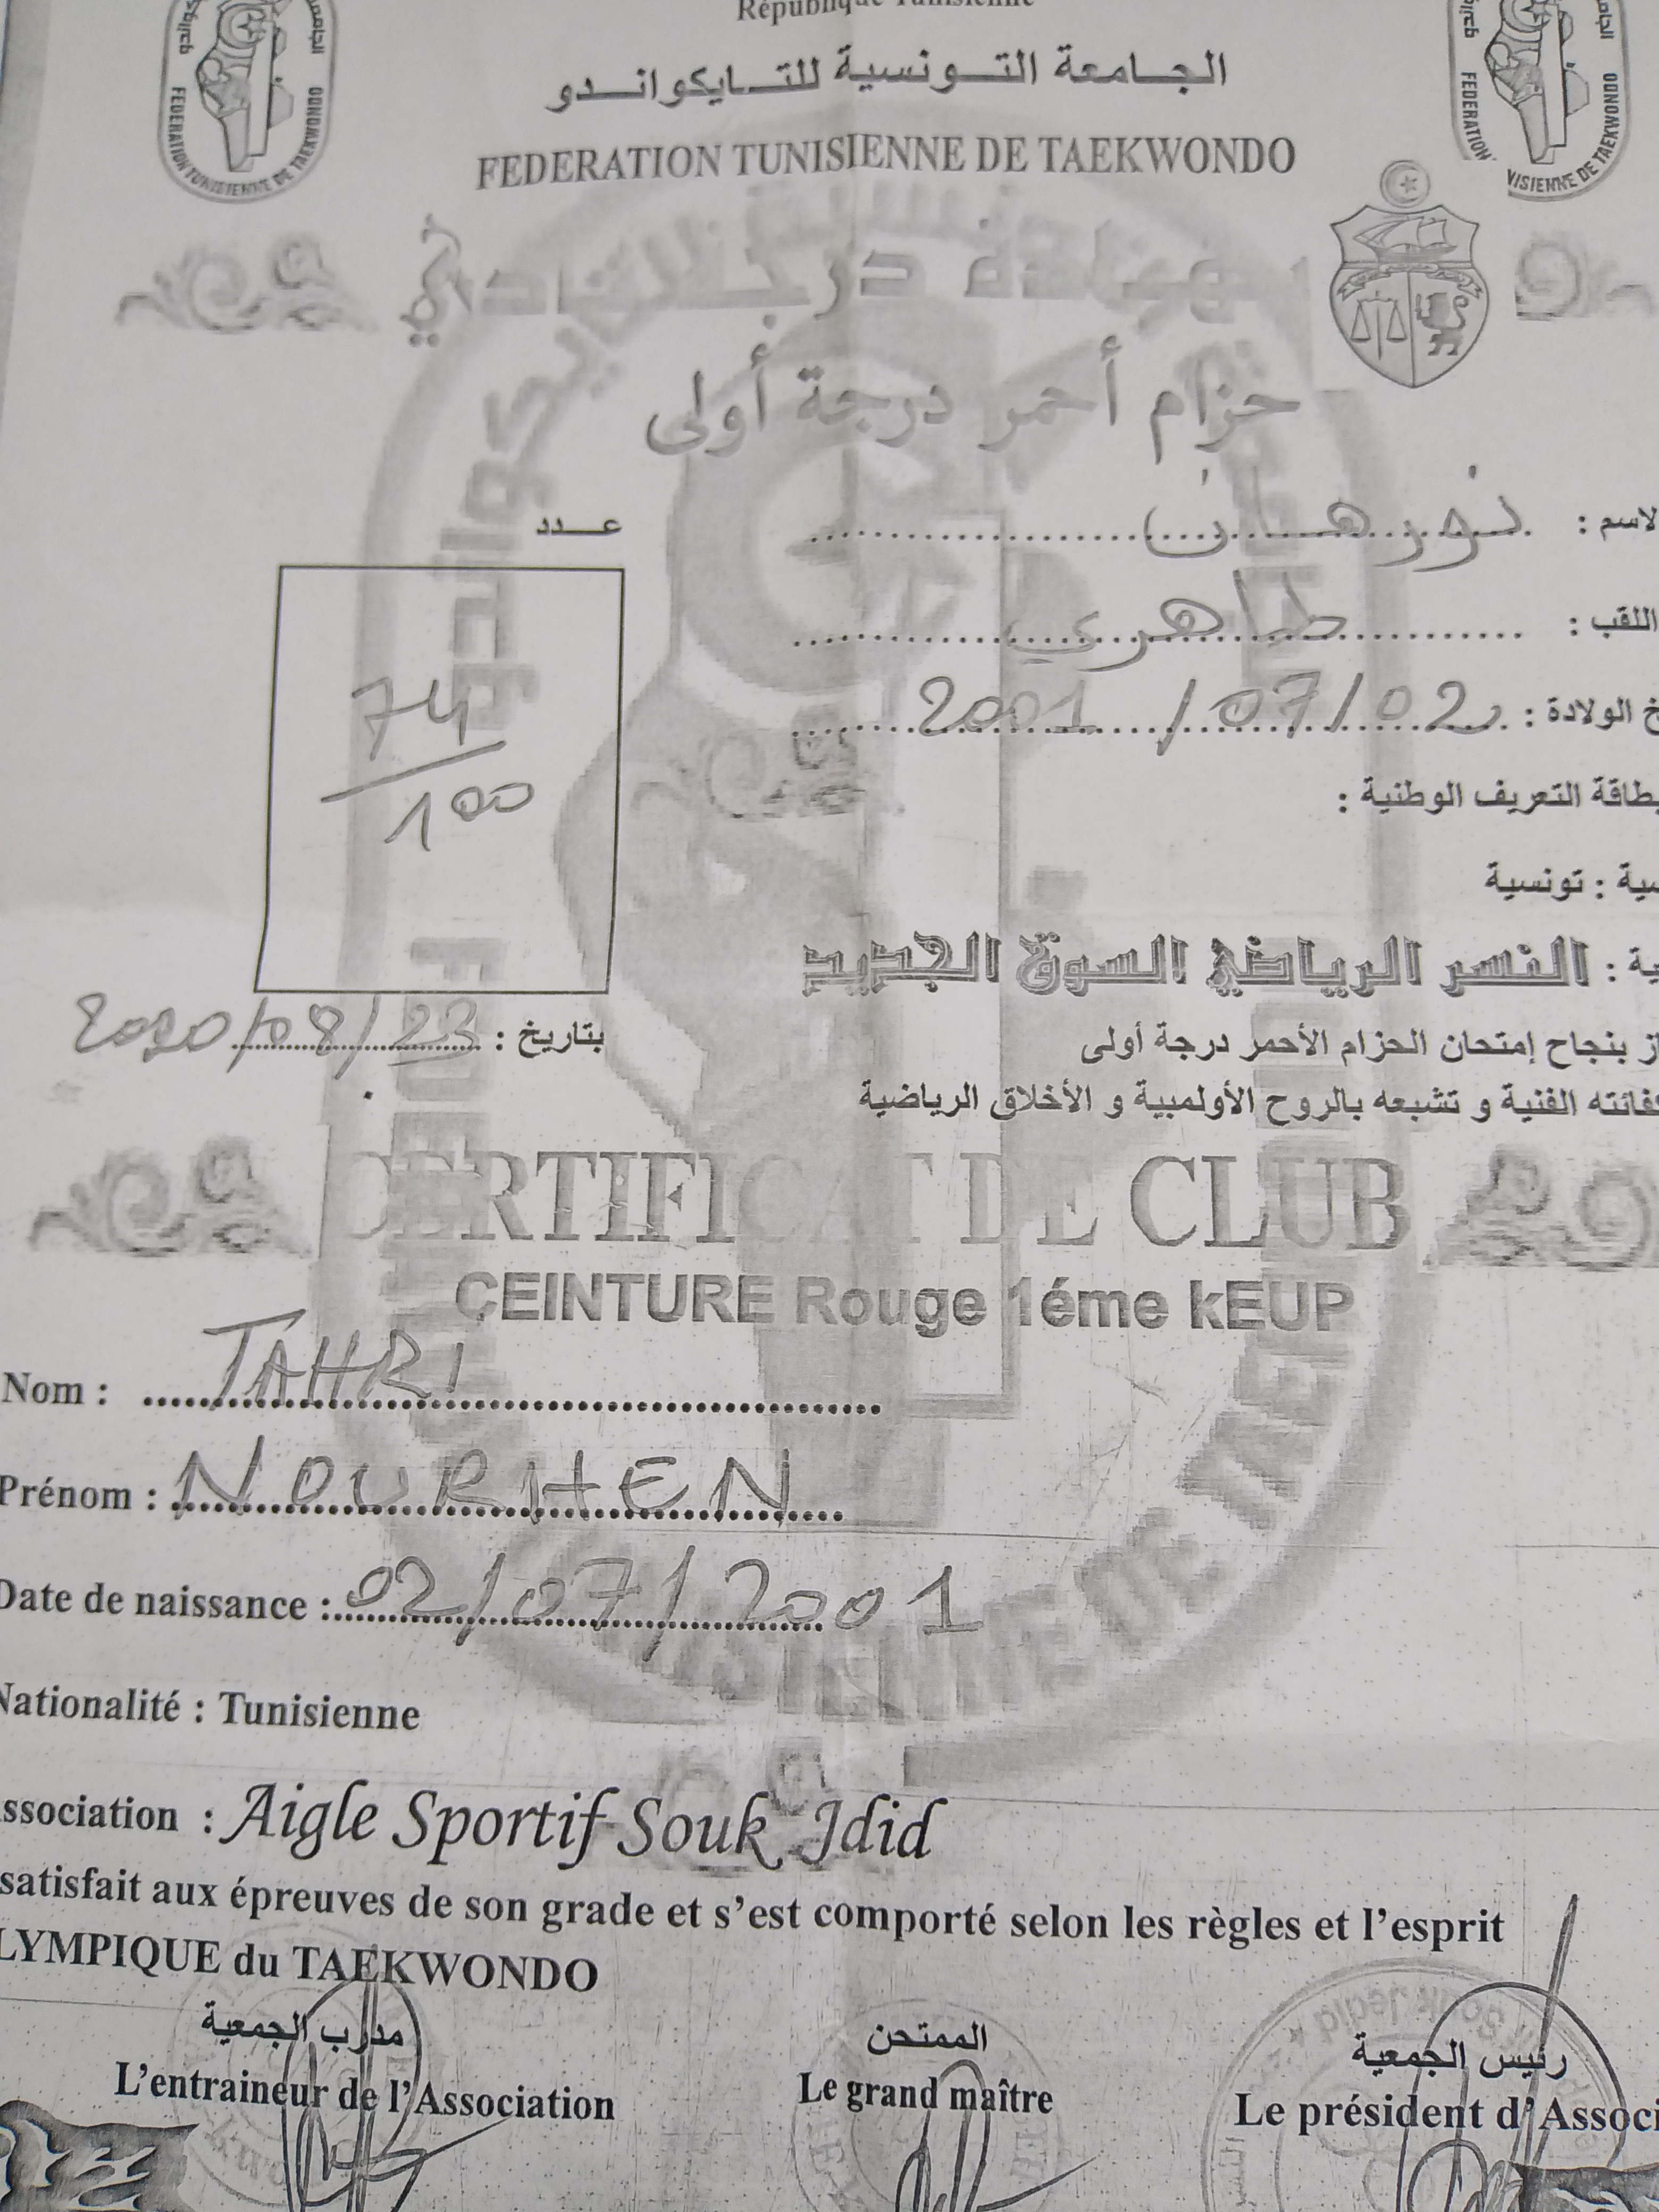 République Tunisienne
الجامعة التونسية للتايكواندو
FEDERATION TUNISIENNE DE TAEKWONDO
FEDERATION TUNISIENNE DE TAEKWONDO
شهادة درجة نادي
حزام أحمر درجة أولى
لاسم : نورهان
اللقب : طاهري
خ الولادة : 02/07/2001
بطاقة التعريف الوطنية :
سية : تونسية
ية : النسر الرياضي السوق الجديد
عدد
74/100
بتاريخ : 23/08/2020
از بنجاح إمتحان الحزام الأحمر درجة أولى
كفائته الفنية و تشبعه بالروح الأولمبية و الأخلاق الرياضية
CERTIFICAT DE CLUB
CEINTURE Rouge 1éme kEUP
Nom : TAHRI
Prénom : NOURHEN
Date de naissance : 02/07/2001
Nationalité : Tunisienne
ssociation : Aigle Sportif Souk Jdid
satisfait aux épreuves de son grade et s'est comporté selon les règles et l'esprit
LYMPIQUE du TAEKWONDO
مدرب الجمعية
L'entraineur de l'Association
الممتحن
Le grand maître
رئيس الجمعية
Le président d'Associ